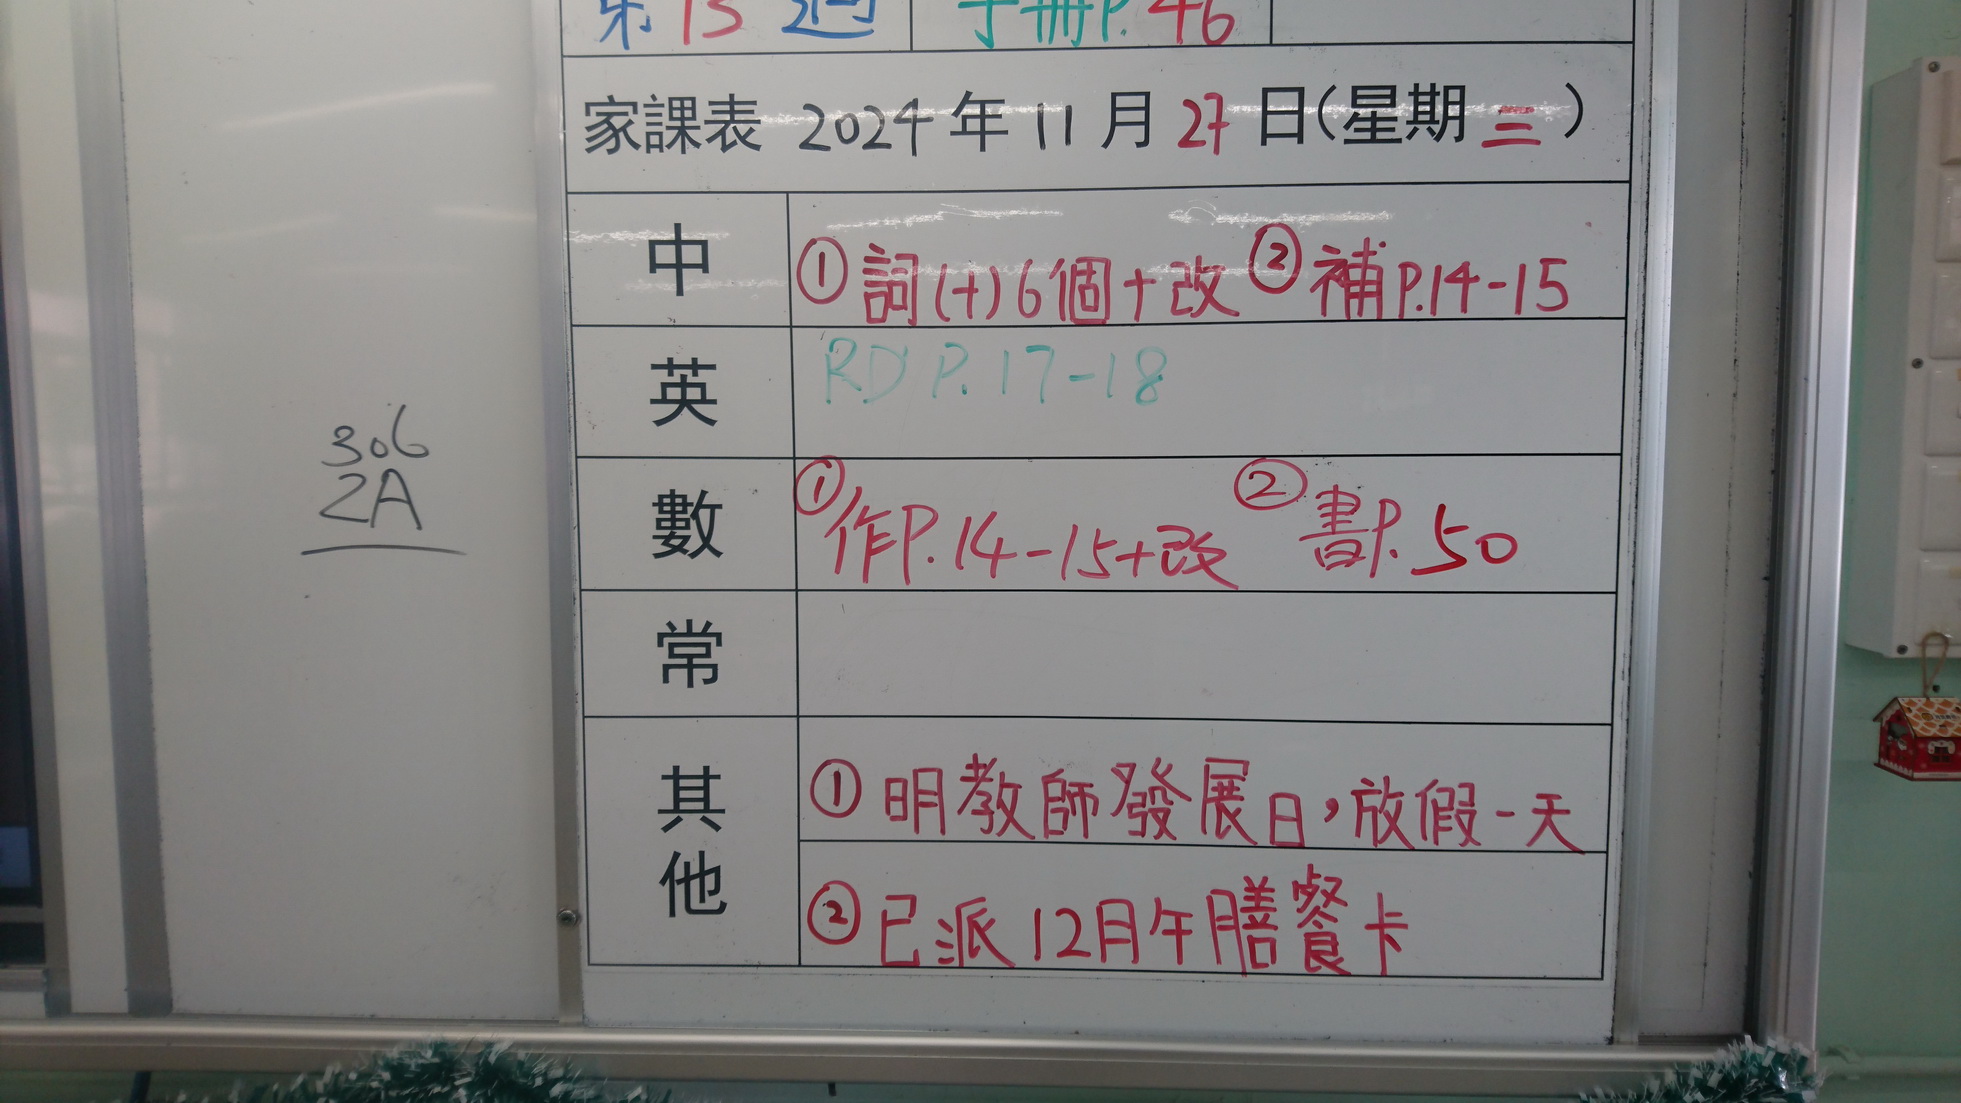 第 13 週 手冊P. 46
家課表 2024 年 11 月 27 日(星期 三)
中 ① 詞(十) 6個+改 ② 補P.14-15
英 RD P. 17-18
數 ① 作P. 14-15+改 ② 書P. 50
常
其他 ① 明教師發展日，放假一天
② 已派 12月午膳餐卡
306
2A